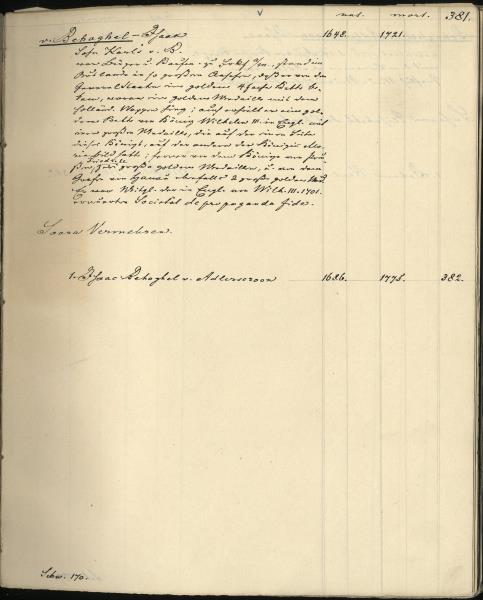 nat. mort. 381.
v. Behaghel - Isaac 1648. 1721.
Sohn Karls v. B.
war Bürger u. Banquier zu Frkf. a/m. stand im
Auslande in so großem Ansehen, daß er von den
Generalstaaten eine goldene Kette
eine goldene Medaille mit dem
Holländ. Wappen ; auch erhielt er eine gol-
dene Kette von König Wilhelm III. in Engl. mit
einer großen Medaille, die auf der einen Seite
dieses Königs, auf der andern der Königin
bild hatte; ferner von dem Könige von Preu-
ßen, Friedr. I. große goldene Medaillen, u. von dem
Grafen von Hanau ebenfalls 2 große goldene
Er war Mitgl. der in Engl. von Wilh. III. 1701.
Societät de propaganda fide.
Vermehren.
1. Isaac Behaghel v. Adlerscron 1686. 1775. 382.
170.